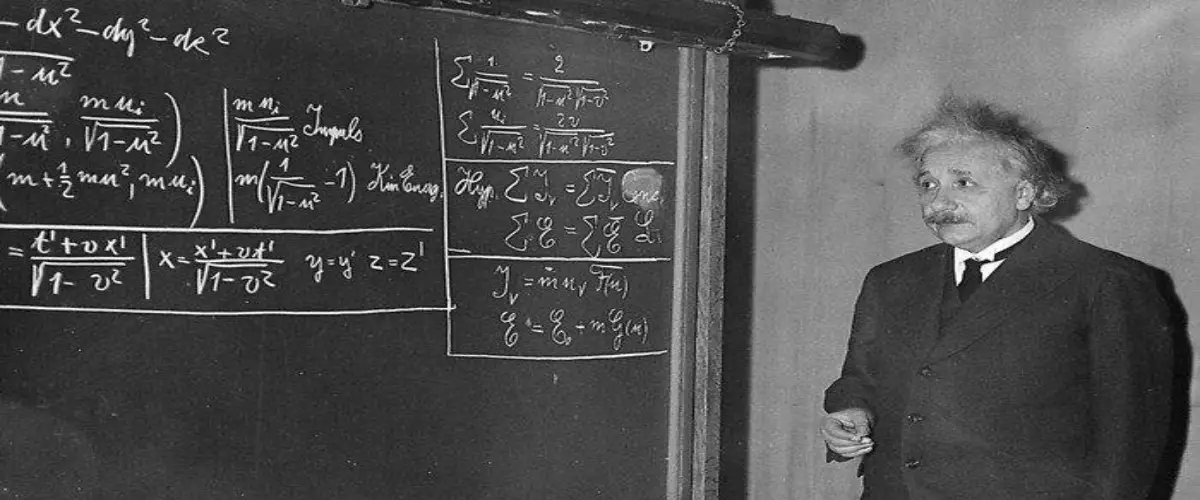 - dx² - dy² - dz²
√1 - u²
m/√1 - u² , m uᵢ/√1 - u² )
( m + ½ mu², m uᵢ )
m uᵢ/√1 - u² Impuls
m( 1/√1 - u² - 1) Kin Energ.
= t' + v x'/√1 - v² | x = x' + v t'/√1 - v² y = y' z = z'
∑ 1/√1 - u² = 2/√1 - u² √1 - v²
∑ uᵢ/√1 - u² = 2v/√1 - u² √1 - v²
Hyp. ∑ I_v = ∑ I̅_v
∑ E = ∑ E̅
I_v = m u_v F(u)
E = E₀ + m G(u)